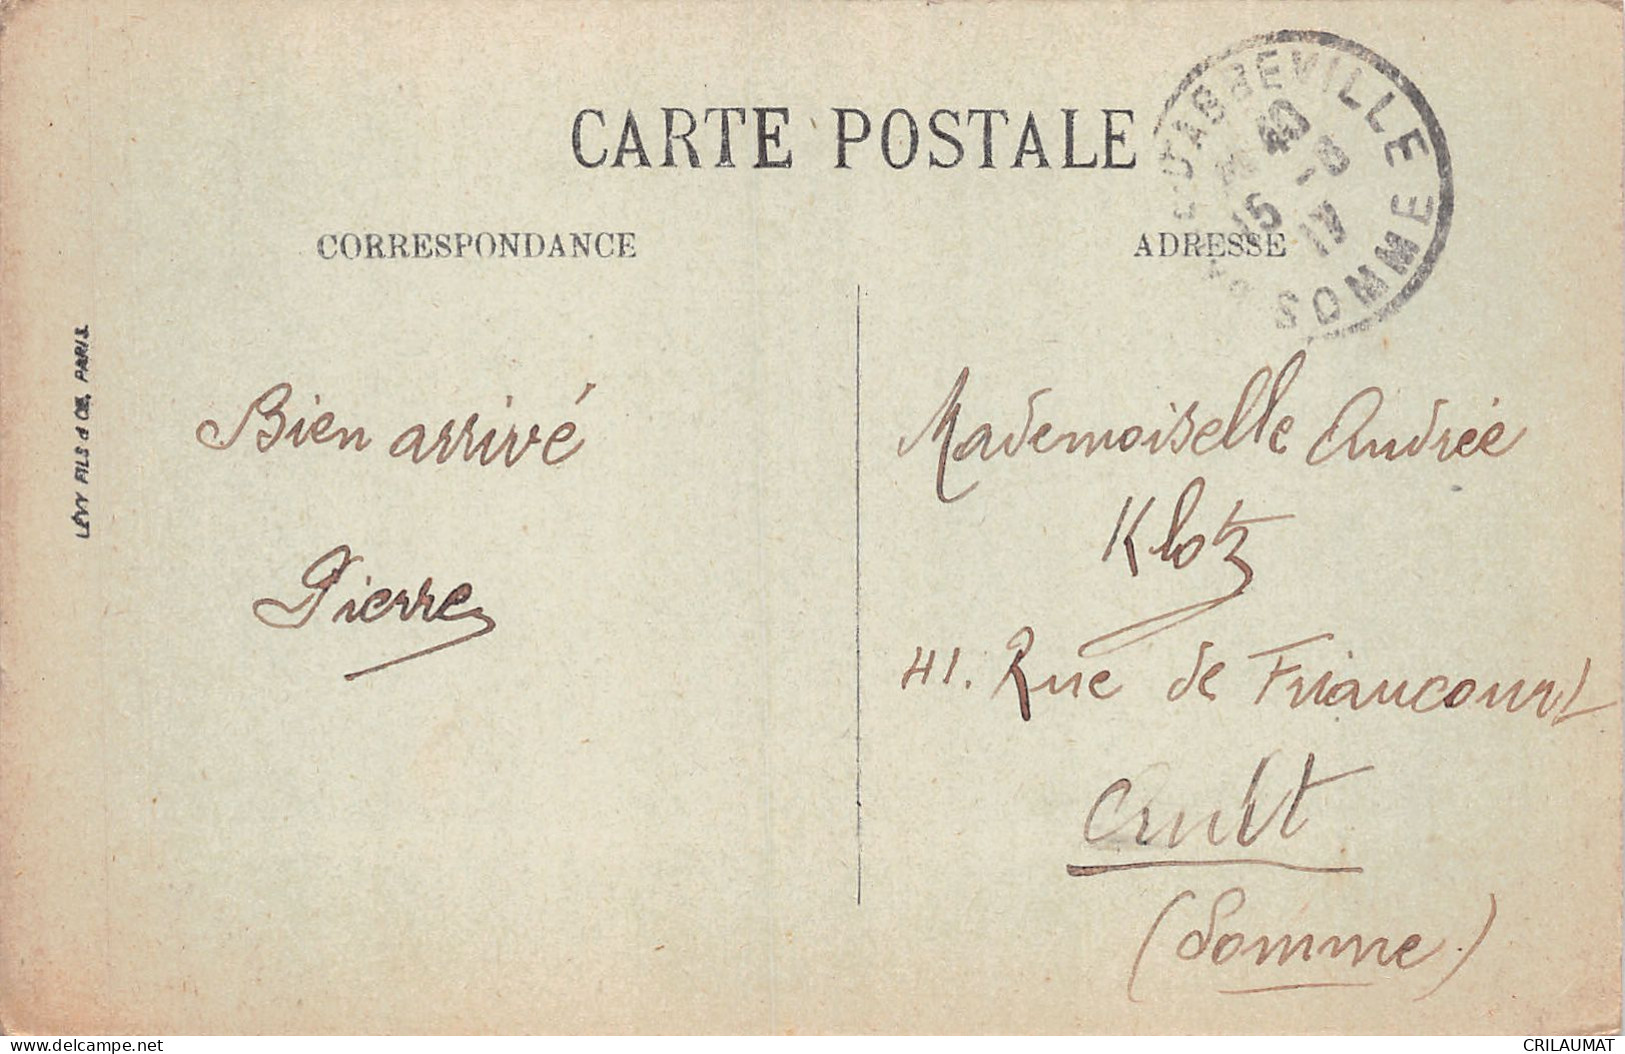 CARTE POSTALE
CORRESPONDANCE
ADRESSE
D'ABBEVILLE
40
15 -8
19
SOMME
LÉVY FILS & CIE, PARIS
Bien arrivé
Pierre
Mademoiselle Andrée
Klotz
41. Rue de Friaucourt
Ault
(Somme.)
delcampe.net
CRILAUMAT